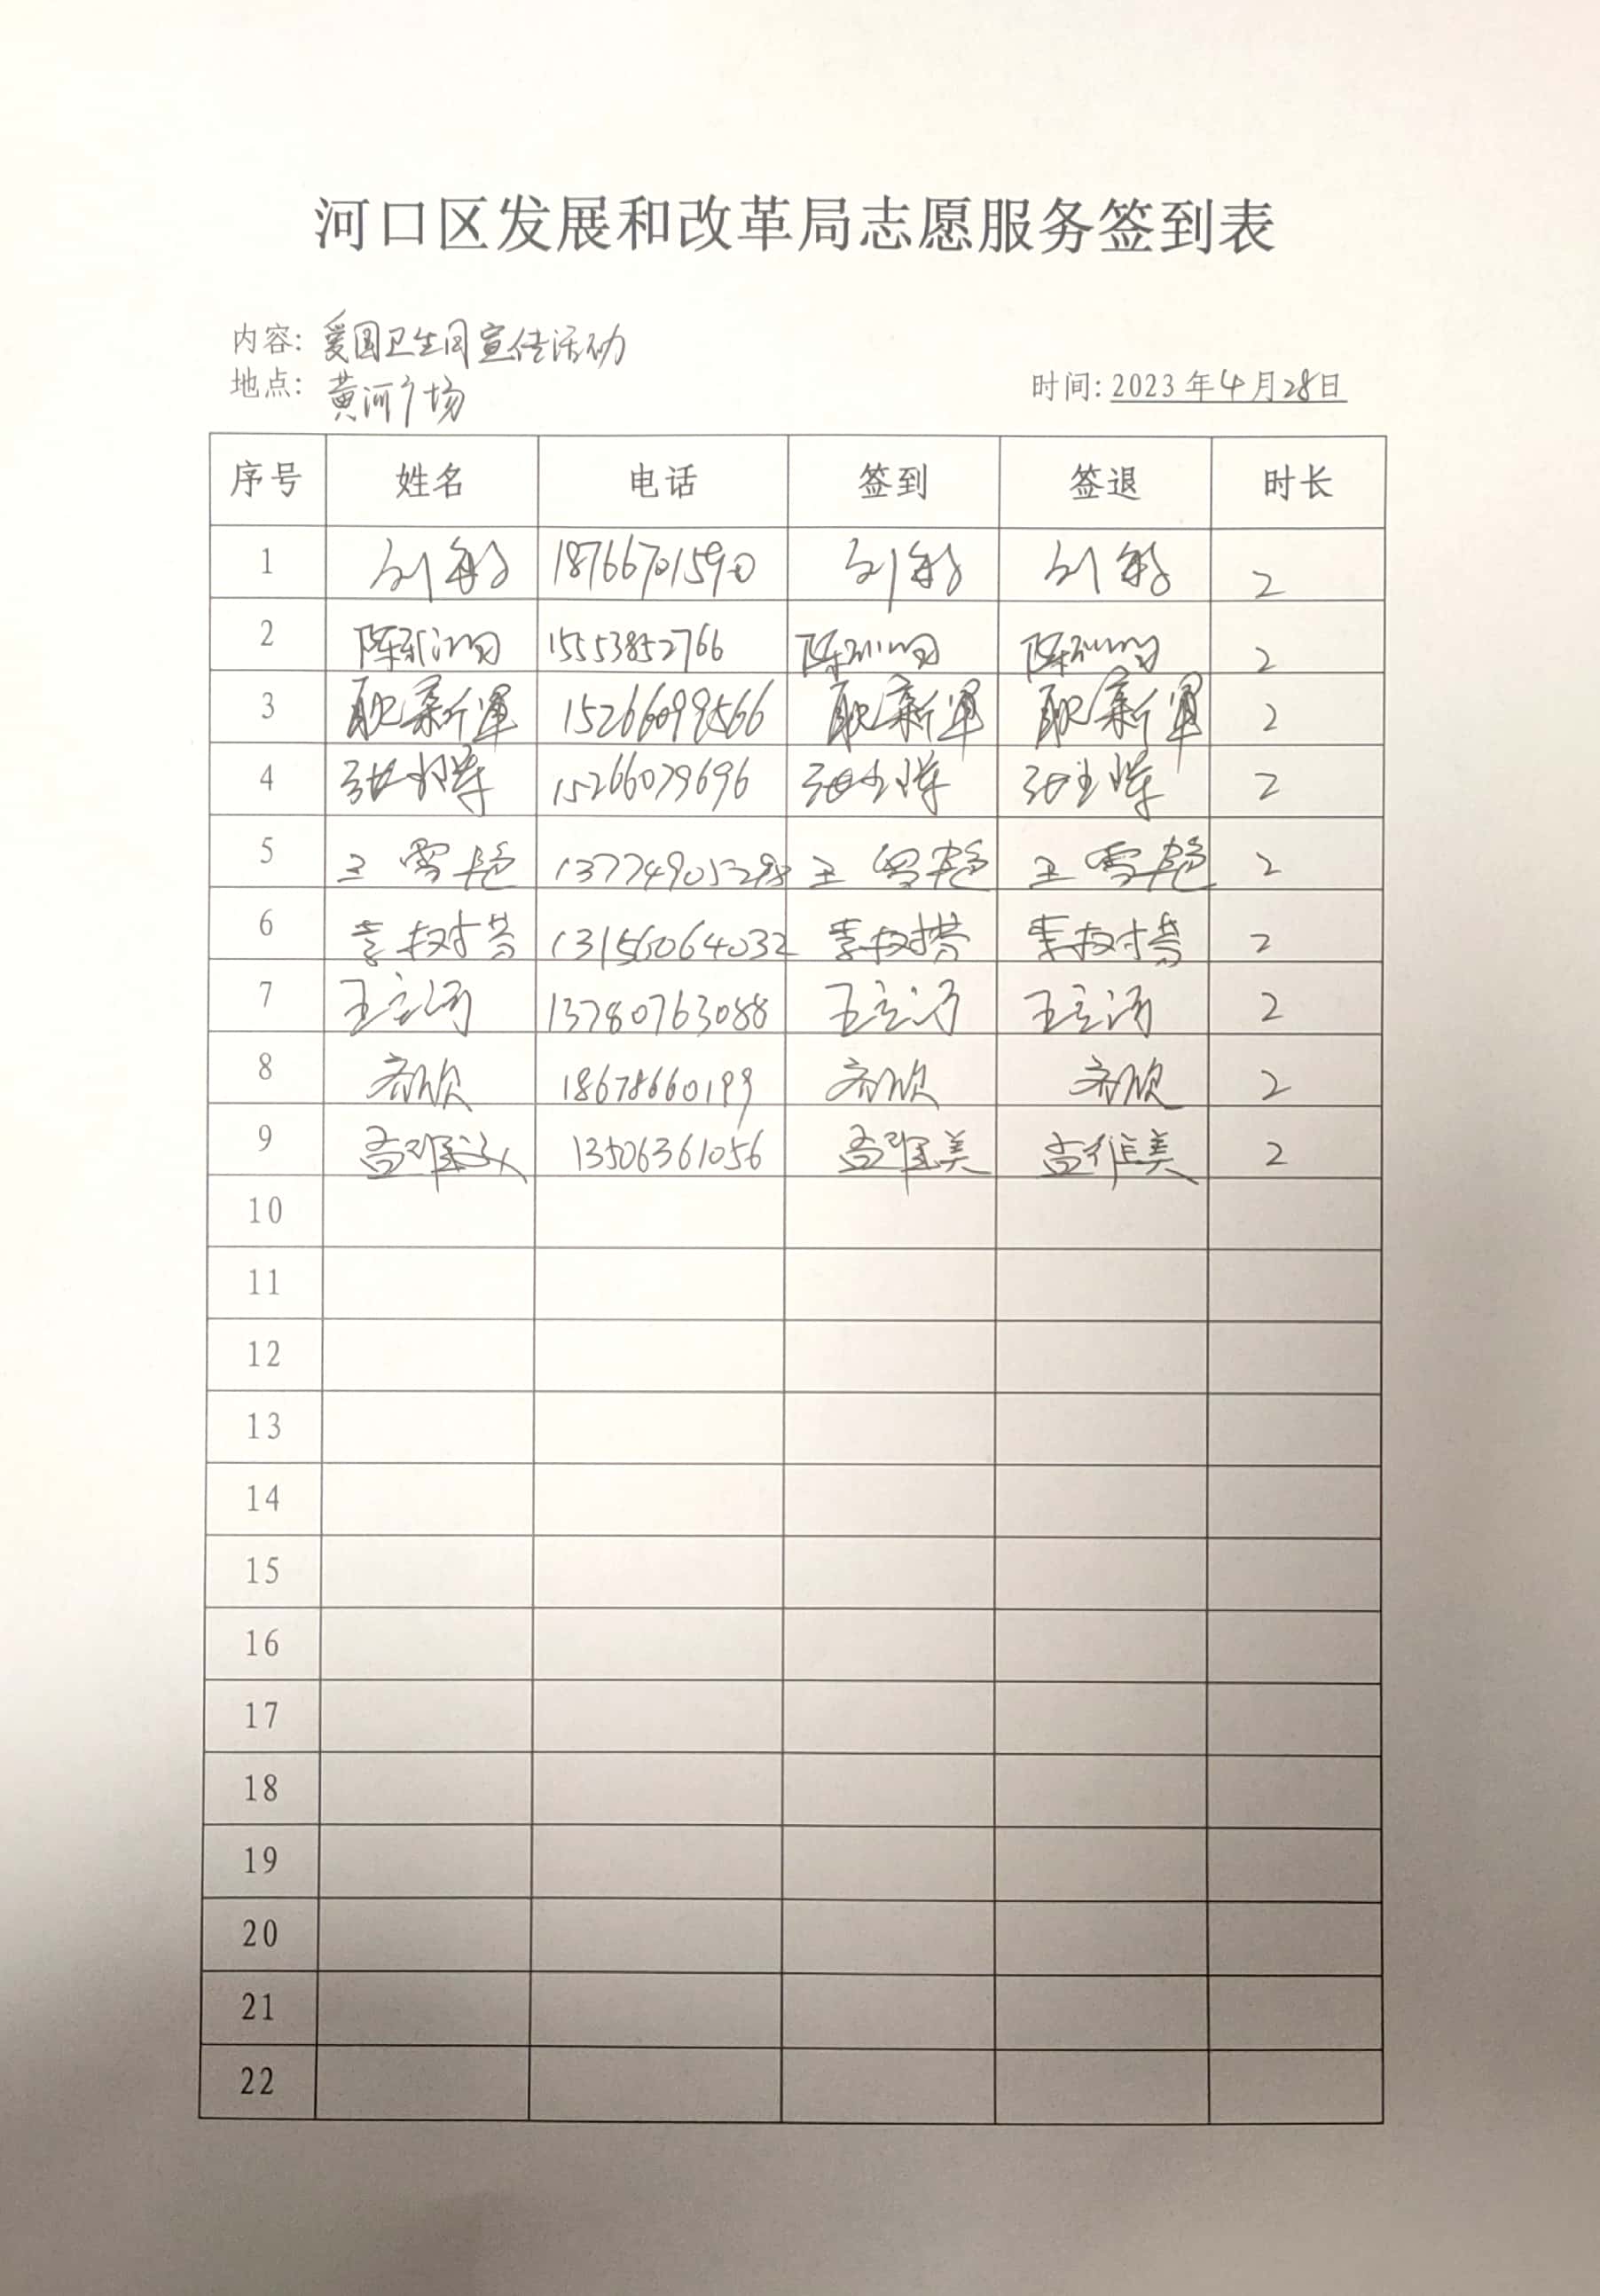 河口区发展和改革局志愿服务签到表
内容: 爱国卫生月宣传活动
地点: 黄河广场
时间: 2023年4月28日
序号 姓名 电话 签到 签退 时长
1 刘敏 18766701590 刘敏 刘敏 2
2 15553852766 2
3 耿新军 15266099566 耿新军 耿新军 2
4 15266079696 2
5 王雪艳 王雪艳 王雪艳 2
6 李树芬 13156064032 李树芬 李树芬 2
7 王立河 13780763088 王立河 王立河 2
8 齐欣 18678660199 齐欣 齐欣 2
9 孟维美 13506361056 孟维美 孟维美 2
10
11
12
13
14
15
16
17
18
19
20
21
22